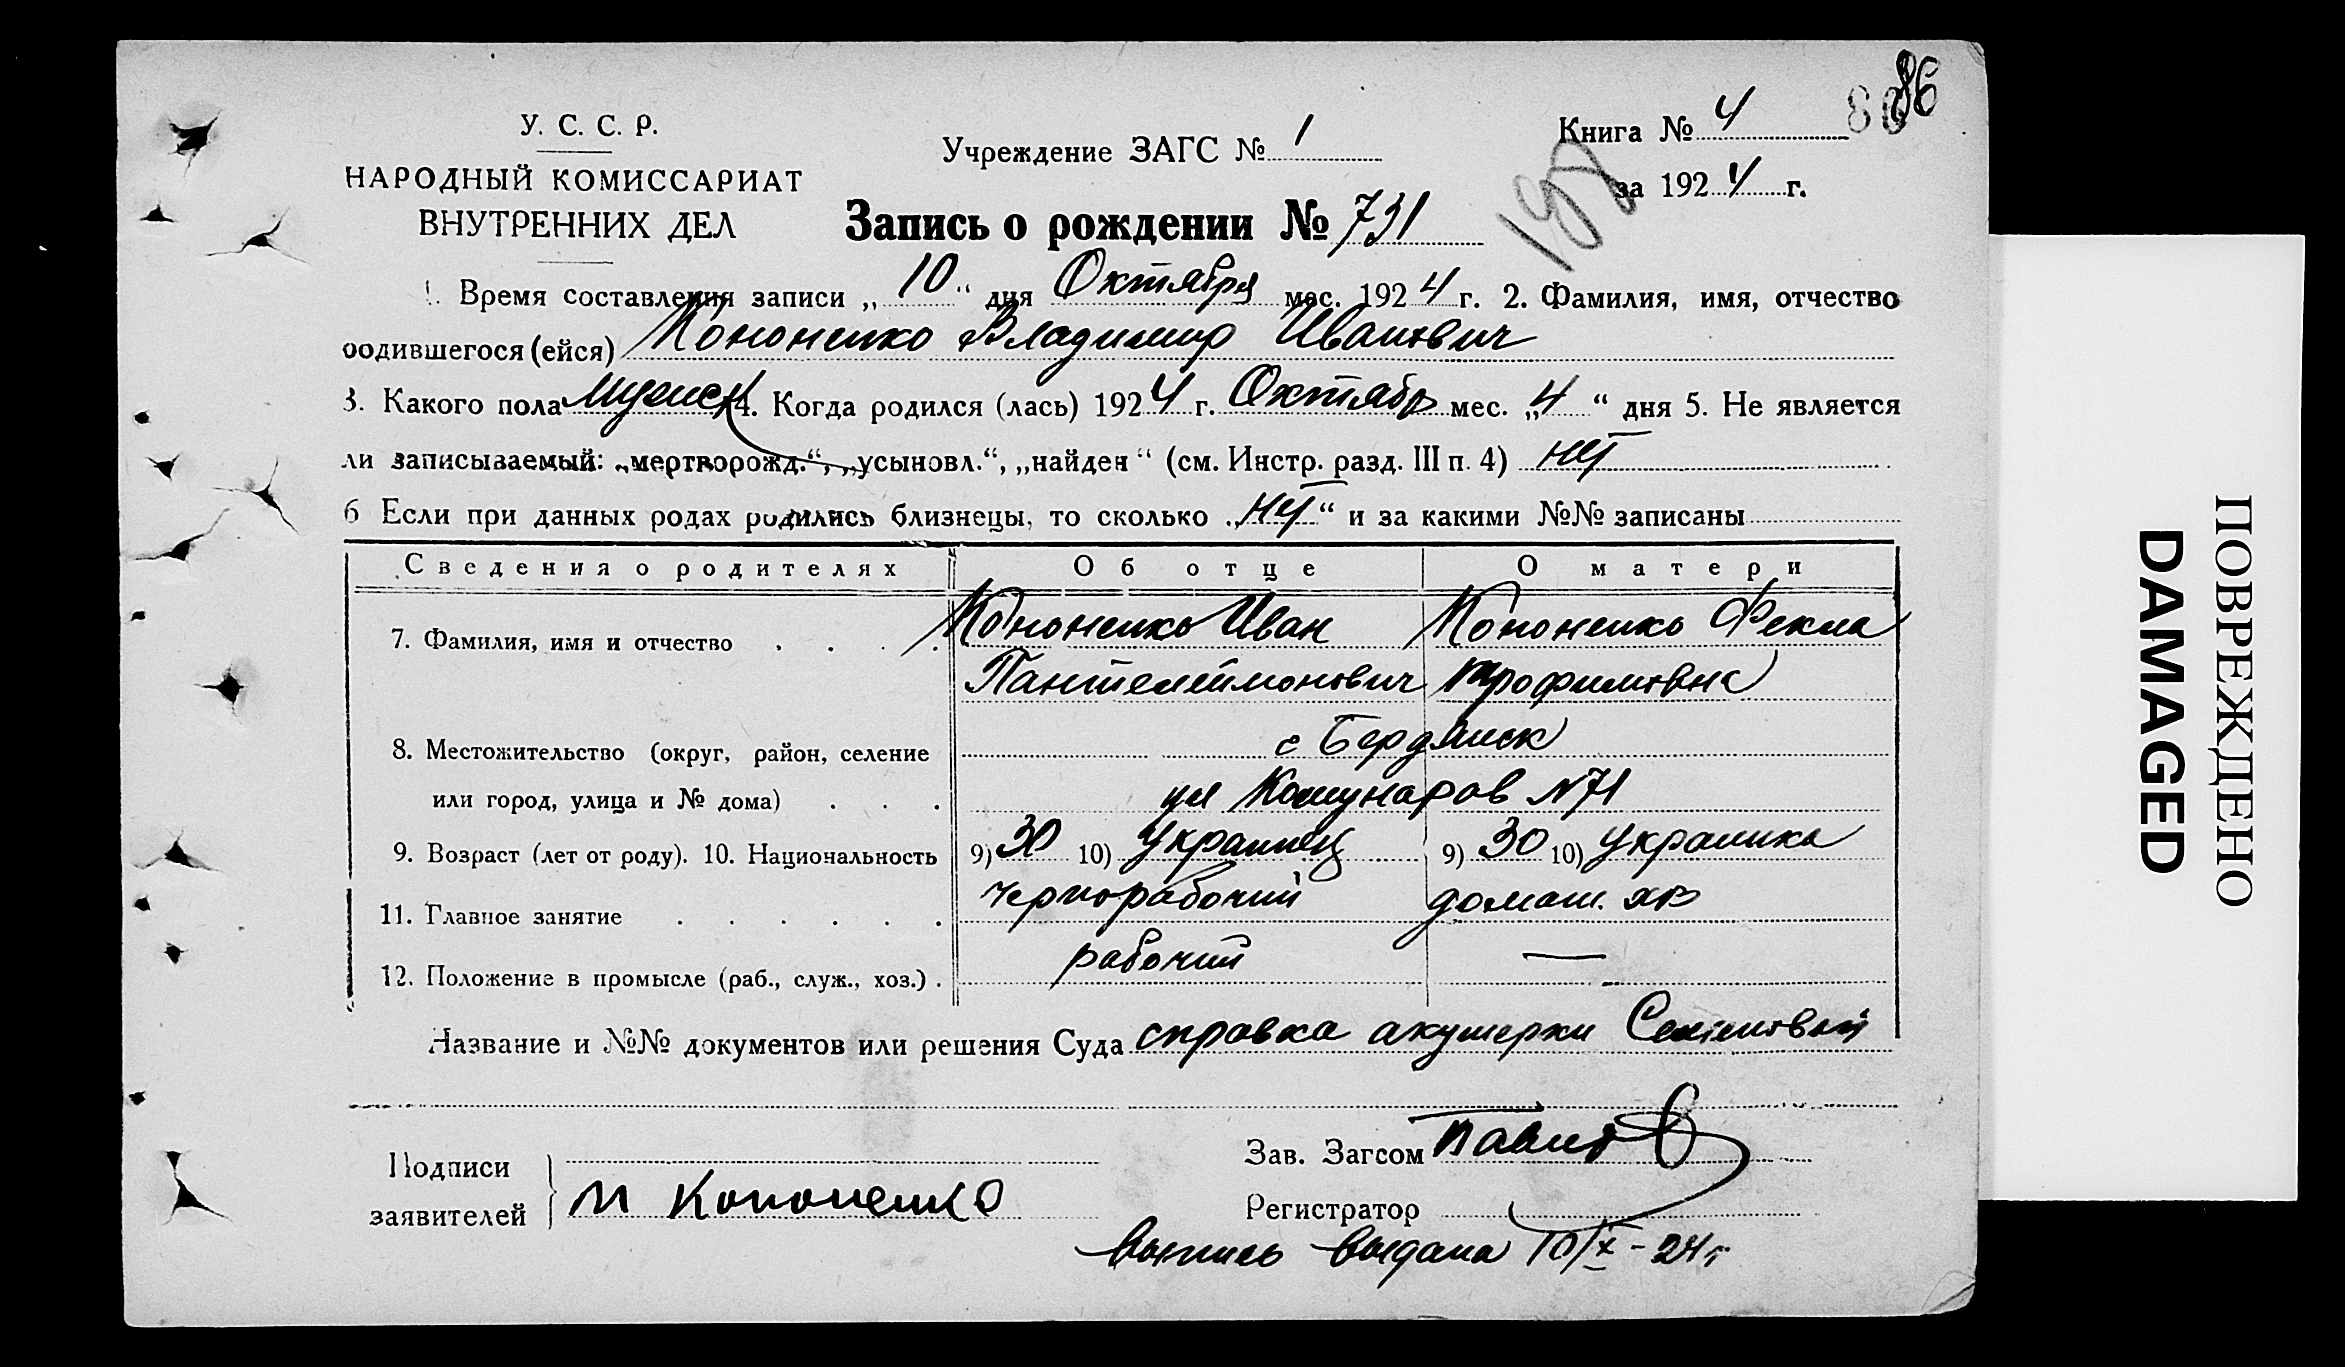 86
У. С. С. Р.
НАРОДНЫЙ КОМИССАРИАТ
ВНУТРЕННИХ ДЕЛ
Учреждение ЗАГС № 1
Книга № 4
за 1924 г.
Запись о рождении № 731
1. Время составления записи „10“ дня Октября мес. 1924 г. 2. Фамилия, имя, отчество
родившегося (ейся) Кононенко Владимир Иванович
3. Какого пола мужск 4. Когда родился (лась) 1924 г. Октябр мес. „4“ дня 5. Не является
ли записываемый: „мертворожд.“, „усыновл.“, „найден“ (см. Инстр. разд. III п. 4) нет
6 Если при данных родах родились близнецы, то сколько „нет“ и за какими №№ записаны
Сведения о родителях Об отце О матери
7. Фамилия, имя и отчество Кононенко Иван Кононенко Фекла
Пантелеймонович Трофимовна
8. Местожительство (округ, район, селение г Бердянск
или город, улица и № дома) ул Комунаров №71
9. Возраст (лет от роду). 10. Национальность 9) 30 10) Украинец 9) 30 10) украинка
11. Главное занятие чернорабочий домаш. хоз
12. Положение в промысле (раб., служ., хоз.) рабочий —
Название и №№ документов или решения Суда справка акушерки
Подписи
заявителей И Кононенко
Зав. Загсом
Регистратор
Выпись выдана 10/X-24г
ПОВРЕЖДЕНО
DAMAGED